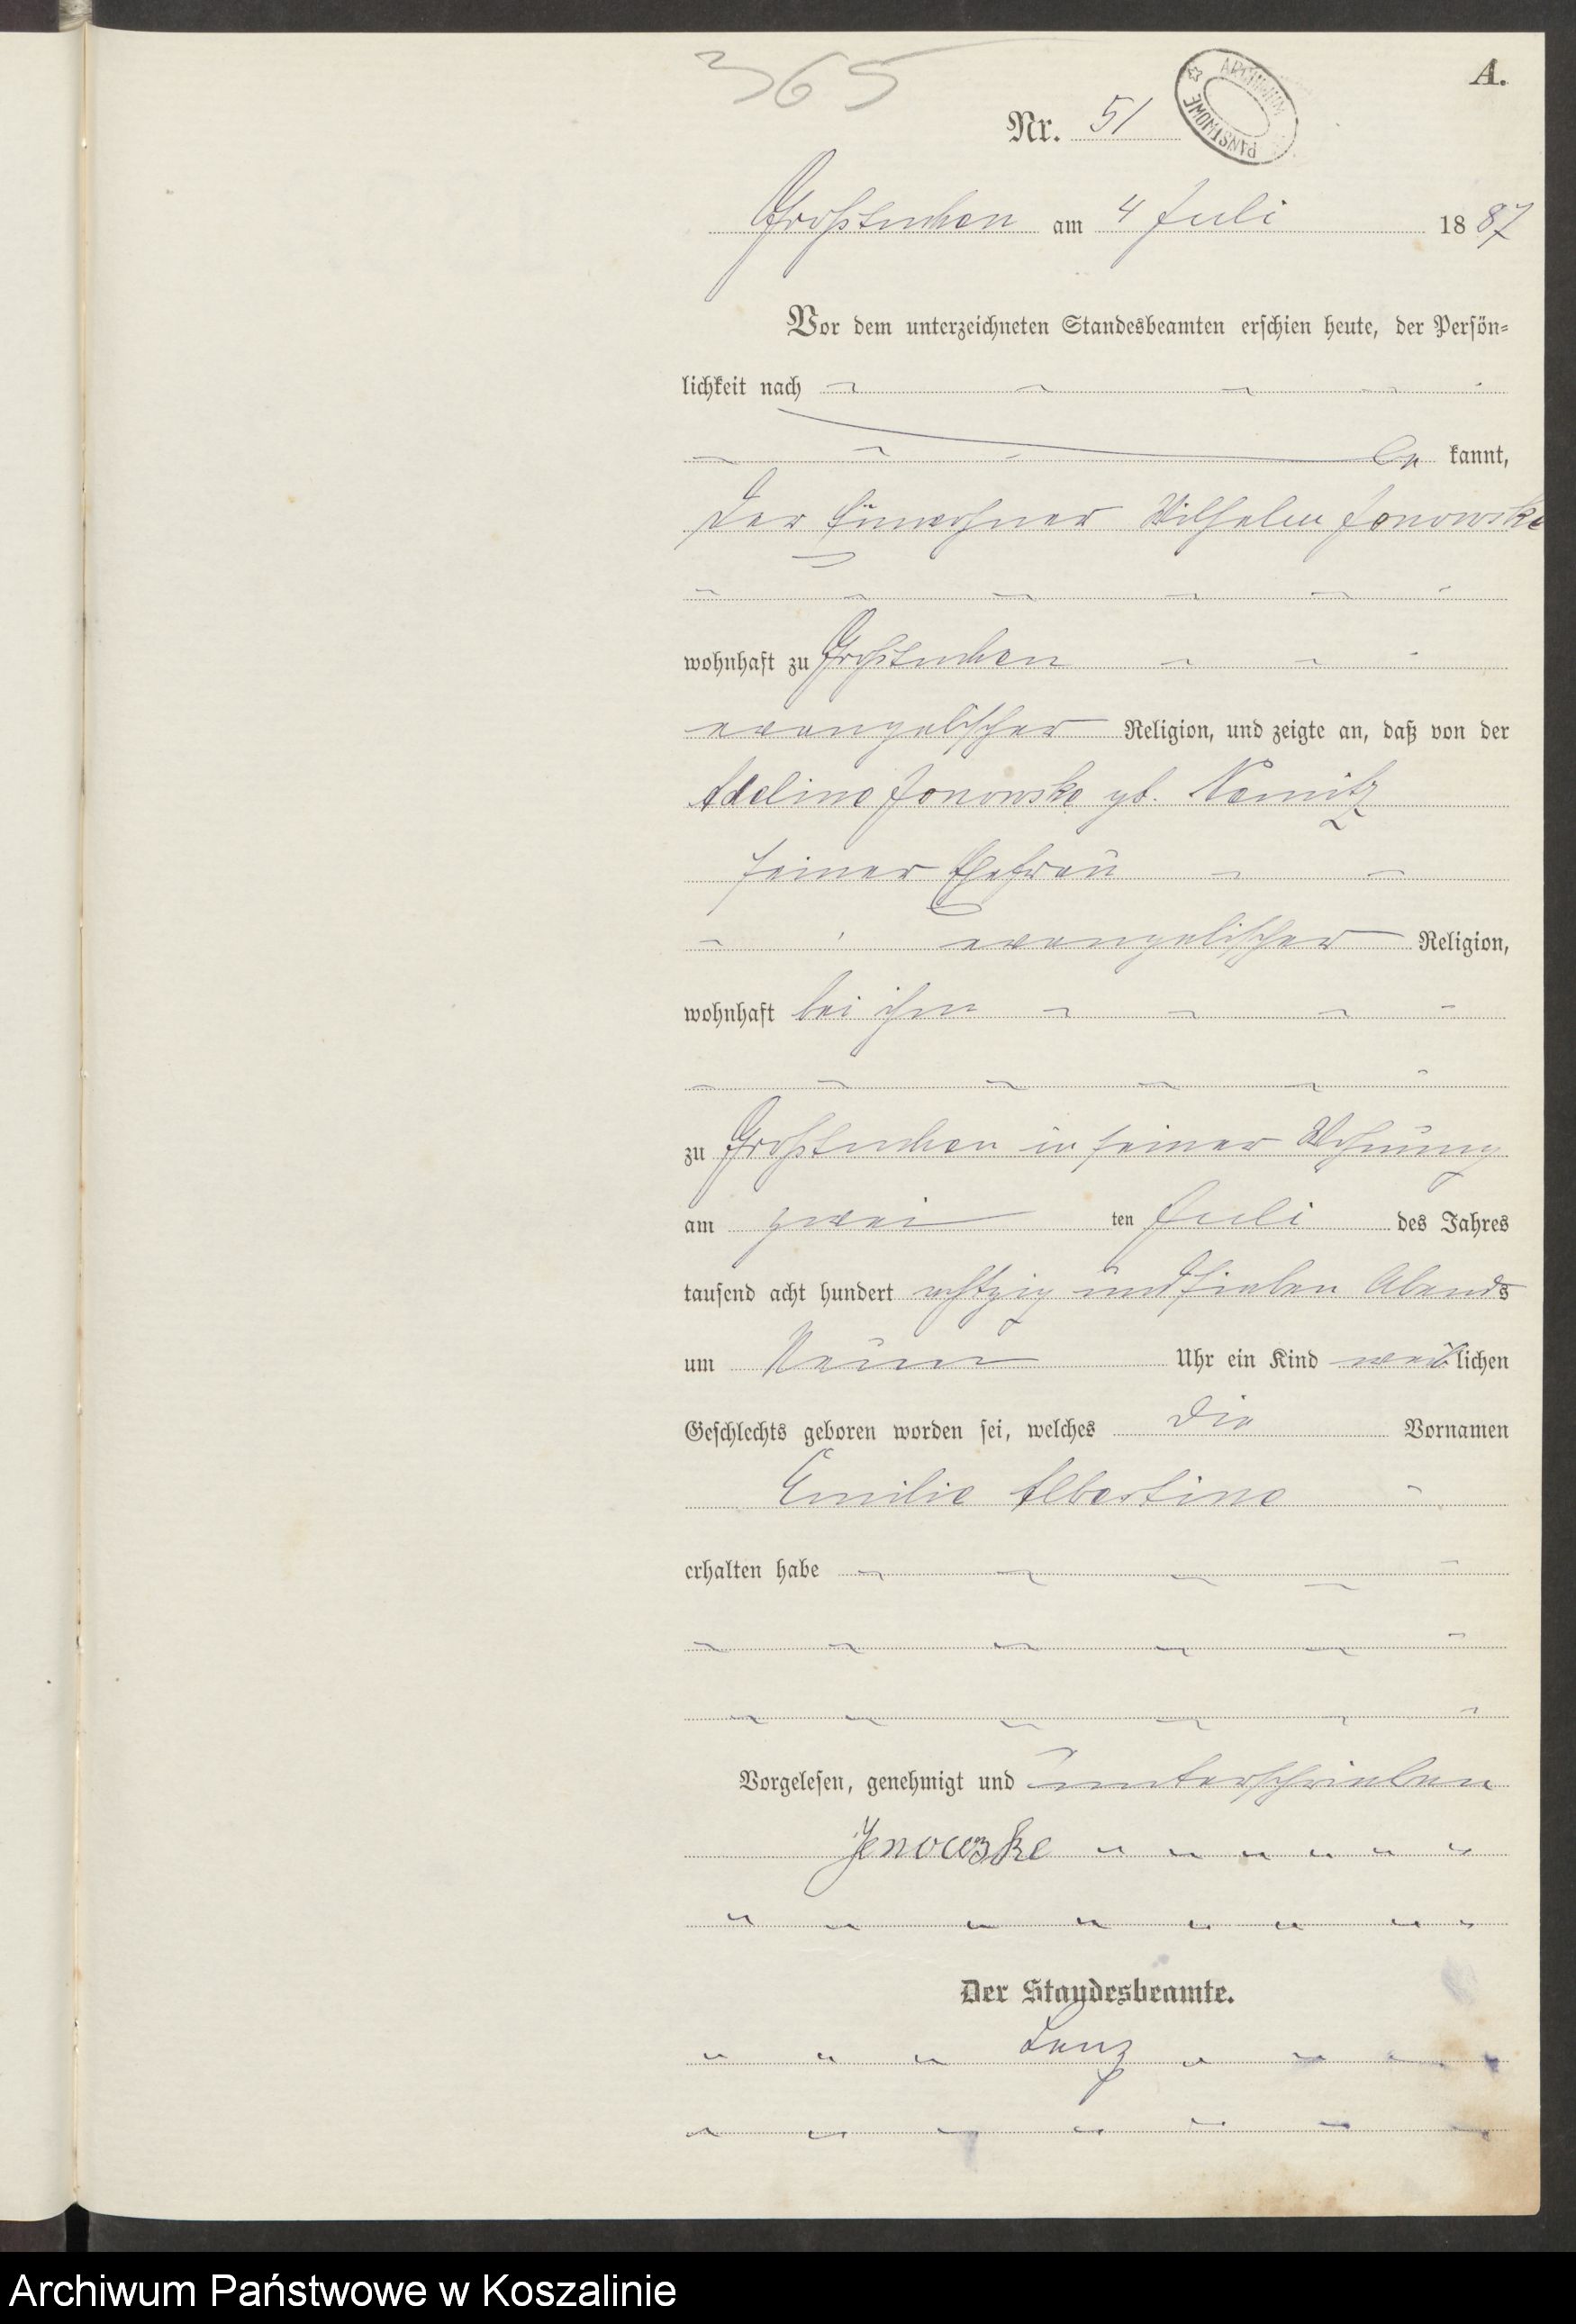 365
A.
ARCHIWUM PAŃSTWOWE
Nr. 51
Großtuchen am 4 Juli 1887
Vor dem unterzeichneten Standesbeamten erschien heute, der Persön-
lichkeit nach
be kannt,
der Einwohner Wilhelm Jenowske
wohnhaft zu Großtuchen
evangelischer Religion, und zeigte an, daß von der
Adeline Jenowske gb. Nemitz
seiner Ehefrau
evangelischer Religion,
wohnhaft bei ihm
zu Großtuchen in seiner Wohnung
am zwei ten Juli des Jahres
tausend acht hundert achtzig und sieben Abends
um Neun Uhr ein Kind weiblichen
Geschlechts geboren worden sei, welches die Vornamen
Emilie Albertine
erhalten habe
Vorgelesen, genehmigt und unterschrieben
Jenowske
Der Standesbeamte.
Lenz
Archiwum Państwowe w Koszalinie